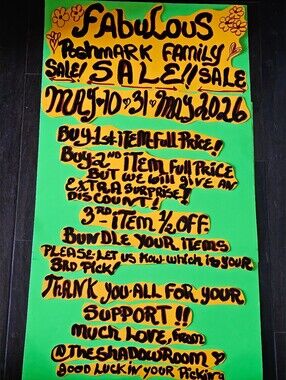 FABULOUS
POSHMARK FAMILY
SALE! SALE!! SALE
MAY•10♡31♡MAY 2026
BUY 1st iTEM FULL PRICE!
BUY-2ND iTEM FULL PRICE
BUT WE WILL GIVE AN
EXTRA SURPRISE!
DISCOUNT!
3RD-iTEM ½ OFF.
BUNDLE YOUR ITEMS
PLEASE LET US KNOW WHICH iTS YOUR
3RD PiCK!
THANK YOU ALL FOR YOUR
SUPPORT!!
MUCH LOVE, FROM
@THESHADOWROOM ♡
GOOD LUCK iN YOUR PICKING